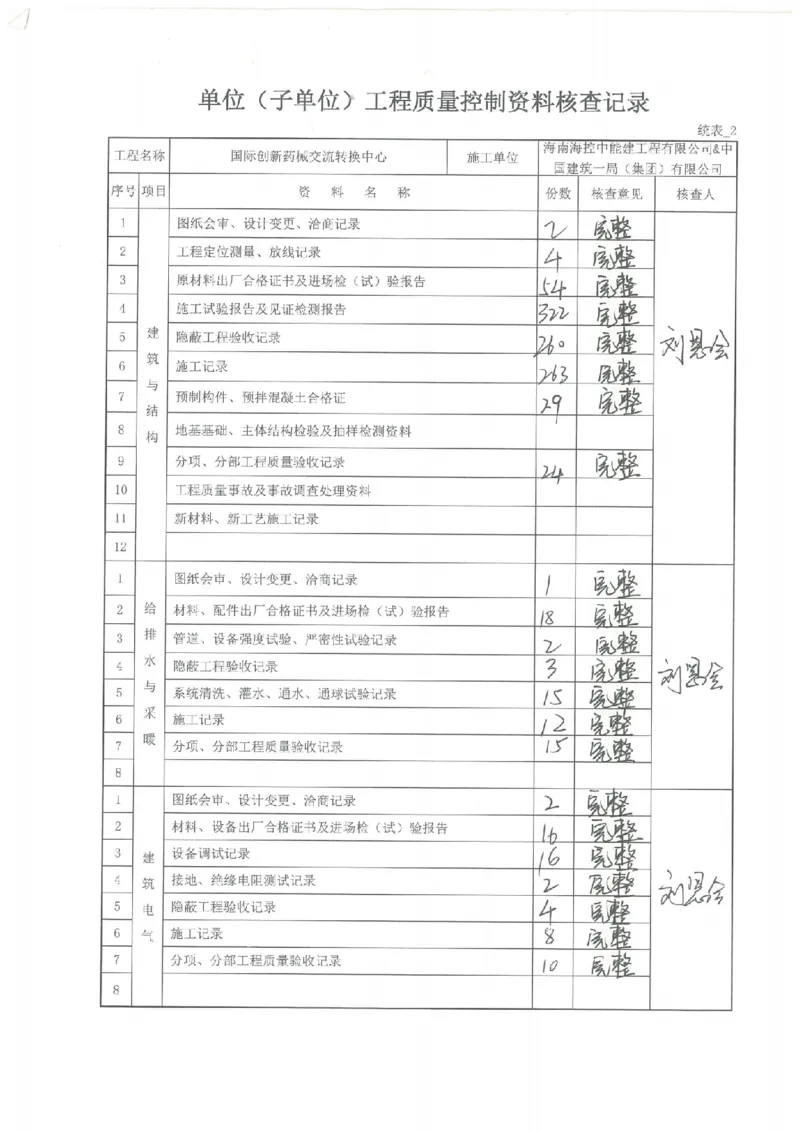 单位（子单位）工程质量控制资料核查记录
统表_2
工程名称 国际创新药械交流转换中心 施工单位 海南海控中能建工程有限公司&中国建筑一局（集团）有限公司
序号 项目 资 料 名 称 份数 核查意见 核查人
建筑与结构
1 图纸会审、设计变更、洽商记录 2 完整
2 工程定位测量、放线记录 4 完整
3 原材料出厂合格证书及进场检（试）验报告 54 完整
4 施工试验报告及见证检测报告 322 完整
5 隐蔽工程验收记录 260 完整
6 施工记录 263 完整
7 预制构件、预拌混凝土合格证 29 完整
8 地基基础、主体结构检验及抽样检测资料
9 分项、分部工程质量验收记录 24 完整
10 工程质量事故及事故调查处理资料
11 新材料、新工艺施工记录
12
给排水与采暖
1 图纸会审、设计变更、洽商记录 1 完整
2 材料、配件出厂合格证书及进场检（试）验报告 18 完整
3 管道、设备强度试验、严密性试验记录 2 完整
4 隐蔽工程验收记录 3 完整
5 系统清洗、灌水、通水、通球试验记录 15 完整
6 施工记录 12 完整
7 分项、分部工程质量验收记录 15 完整
8
建筑电气
1 图纸会审、设计变更、洽商记录 2 完整
2 材料、设备出厂合格证书及进场检（试）验报告 16 完整
3 设备调试记录 16 完整
4 接地、绝缘电阻测试记录 2 完整
5 隐蔽工程验收记录 4 完整
6 施工记录 8 完整
7 分项、分部工程质量验收记录 10 完整
8